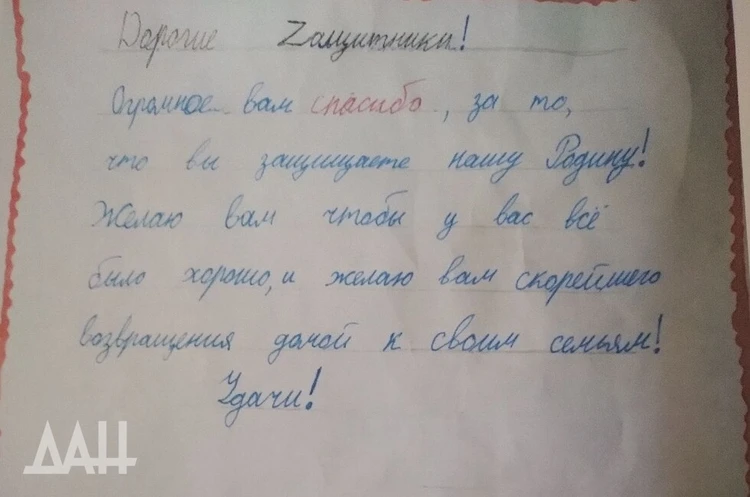 Дорогие Zащитники!
Огромное вам спасибо, за то,
что вы защищаете нашу Родину!
Желаю вам чтобы у вас всё
было хорошо, и желаю вам скорейшего
возвращения домой к своим семьям!
Удачи!
ДАН